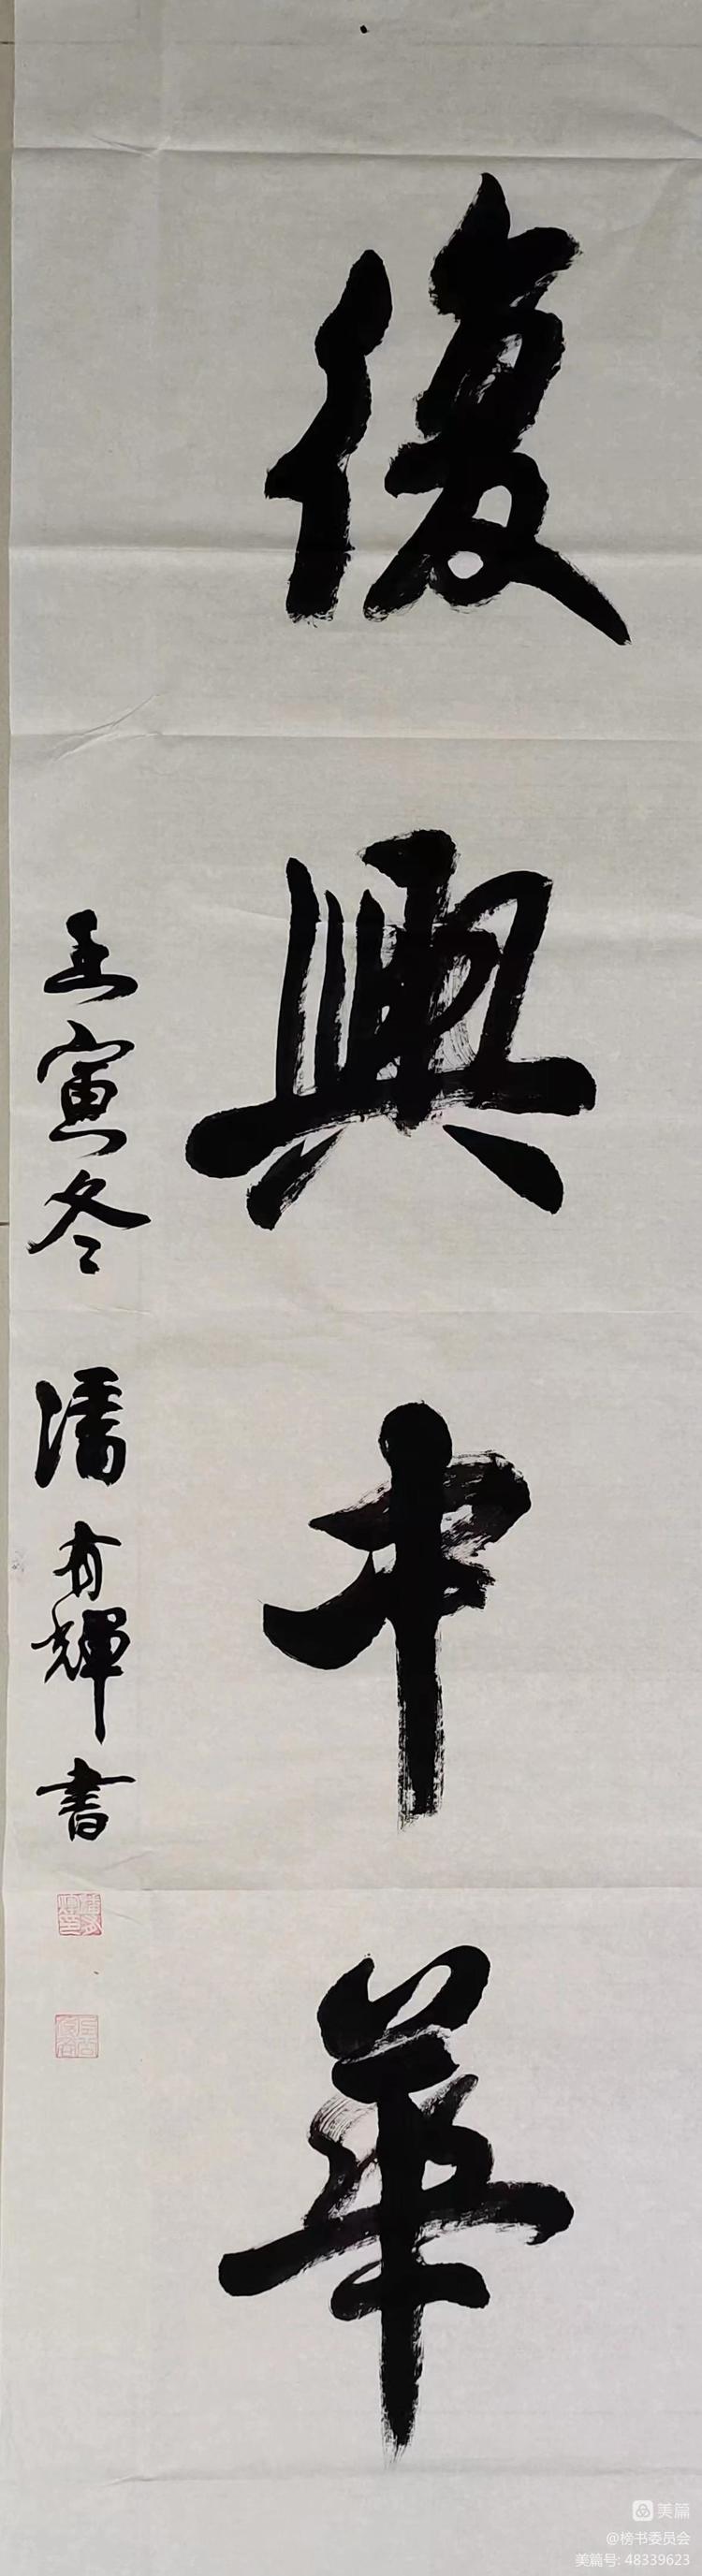 復興中華
壬寅冬 潘有輝書
美篇
@榜书委员会
美篇号: 48339623